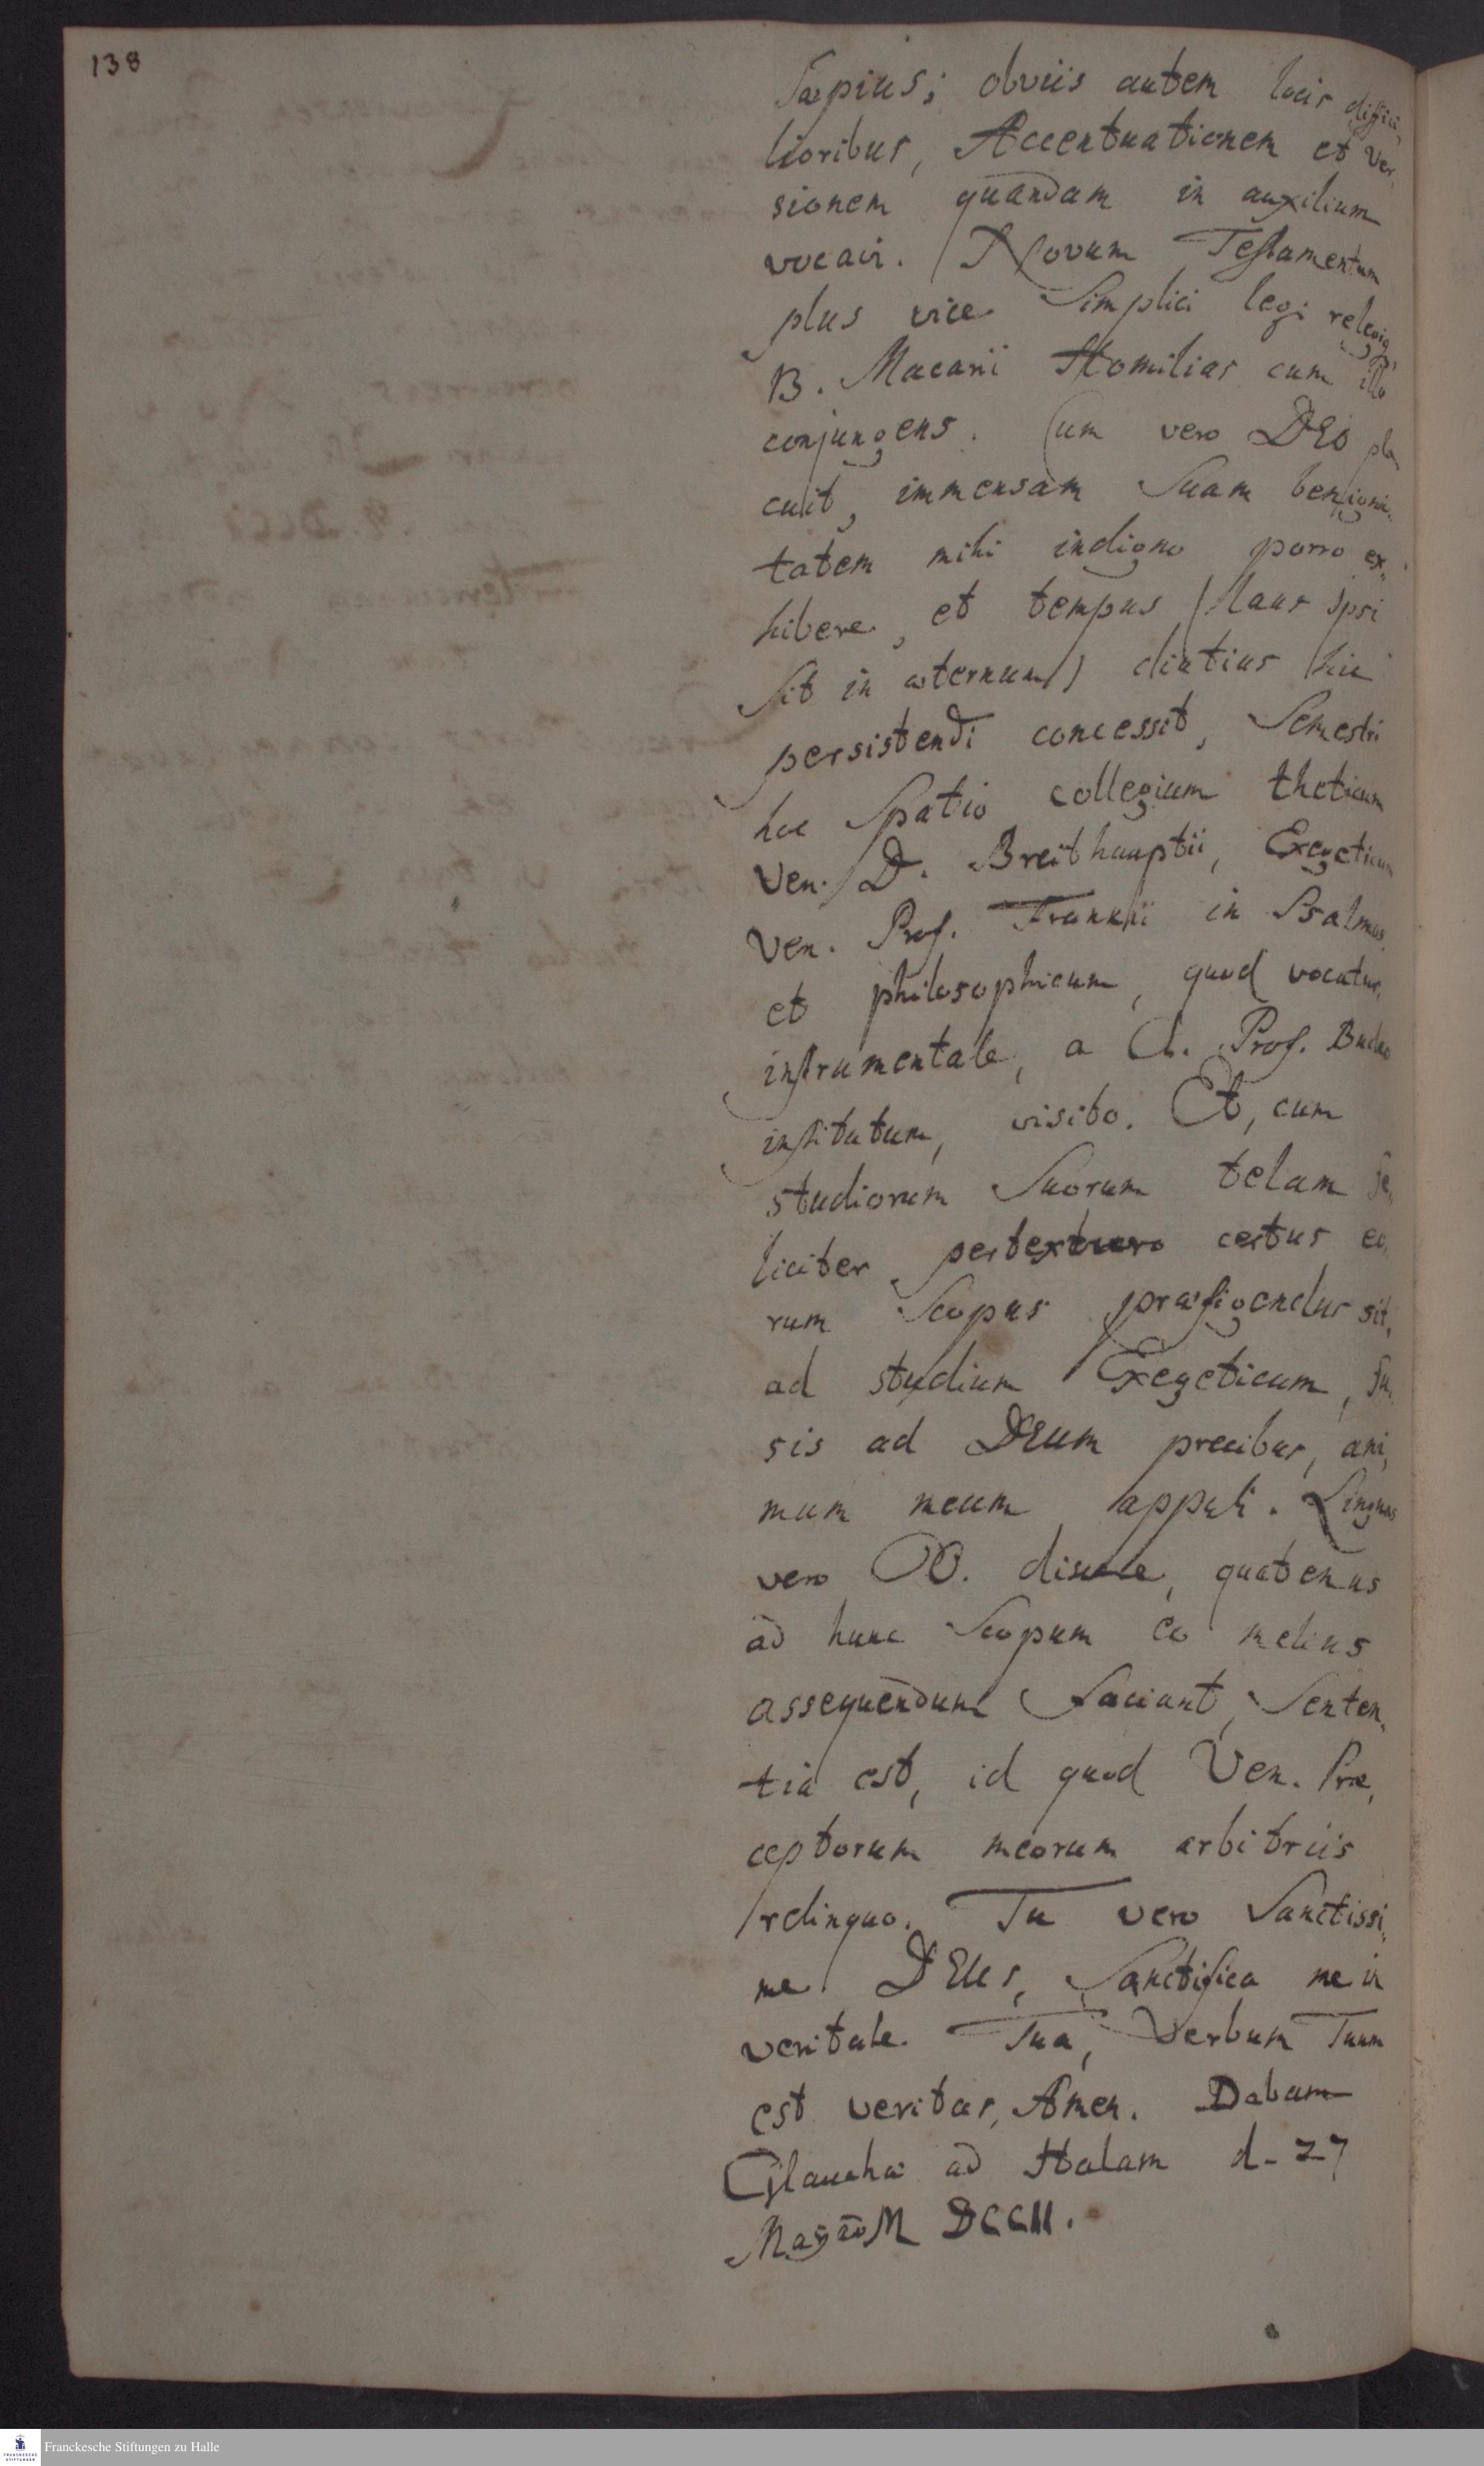 138
Sæpius; obviis autem locis diffici,
lioribus, Accentuationem et Ver,
sionem quandam in auxilium
vocavi. Novum Testamentum
plus vice Simplici legi relegiq,
B. Macarii Homilias cum illo
conjungens. Cum vero DEO pla
cuit, immensam Suam benigni,
tatem mihi indigno porro ex,
hibere, et tempus (laus Ipsi
Sit in æternum) diutius hic
persistendi concessit, Semestri
hoc Spatio collegium theticum
Ven. D. Breithauptii, Exegeticum
Ven. Prof. Frankii in Psalmos,
et philosophicum, quod vocatur,
instrumentale, a Cl. Prof. Budeo
institutum, visito. Et, cum
studiorum Suorum telam fe,
liciter pertexturo certus eo,
rum Scopus præfigendus sit,
ad studium Exegeticum, fu,
sis ad DEUM precibus, ani,
mum meum appuli. Linguas
vero OO. discere, quatenus
ad hunc Scopum eo melius
assequendum faciunt, Senten,
tia est, id quod Ven. Præ,
ceptorum meorum arbitriis
relinquo. Tu vero Sanctissi,
me DEUS, Sanctifica me in
veritate Tua, Verbum Tuum
est veritas, Amen. Dabam
Glauchæ ad Halam d. 27
Maj M DCCII.
Franckesche Stiftungen zu Halle